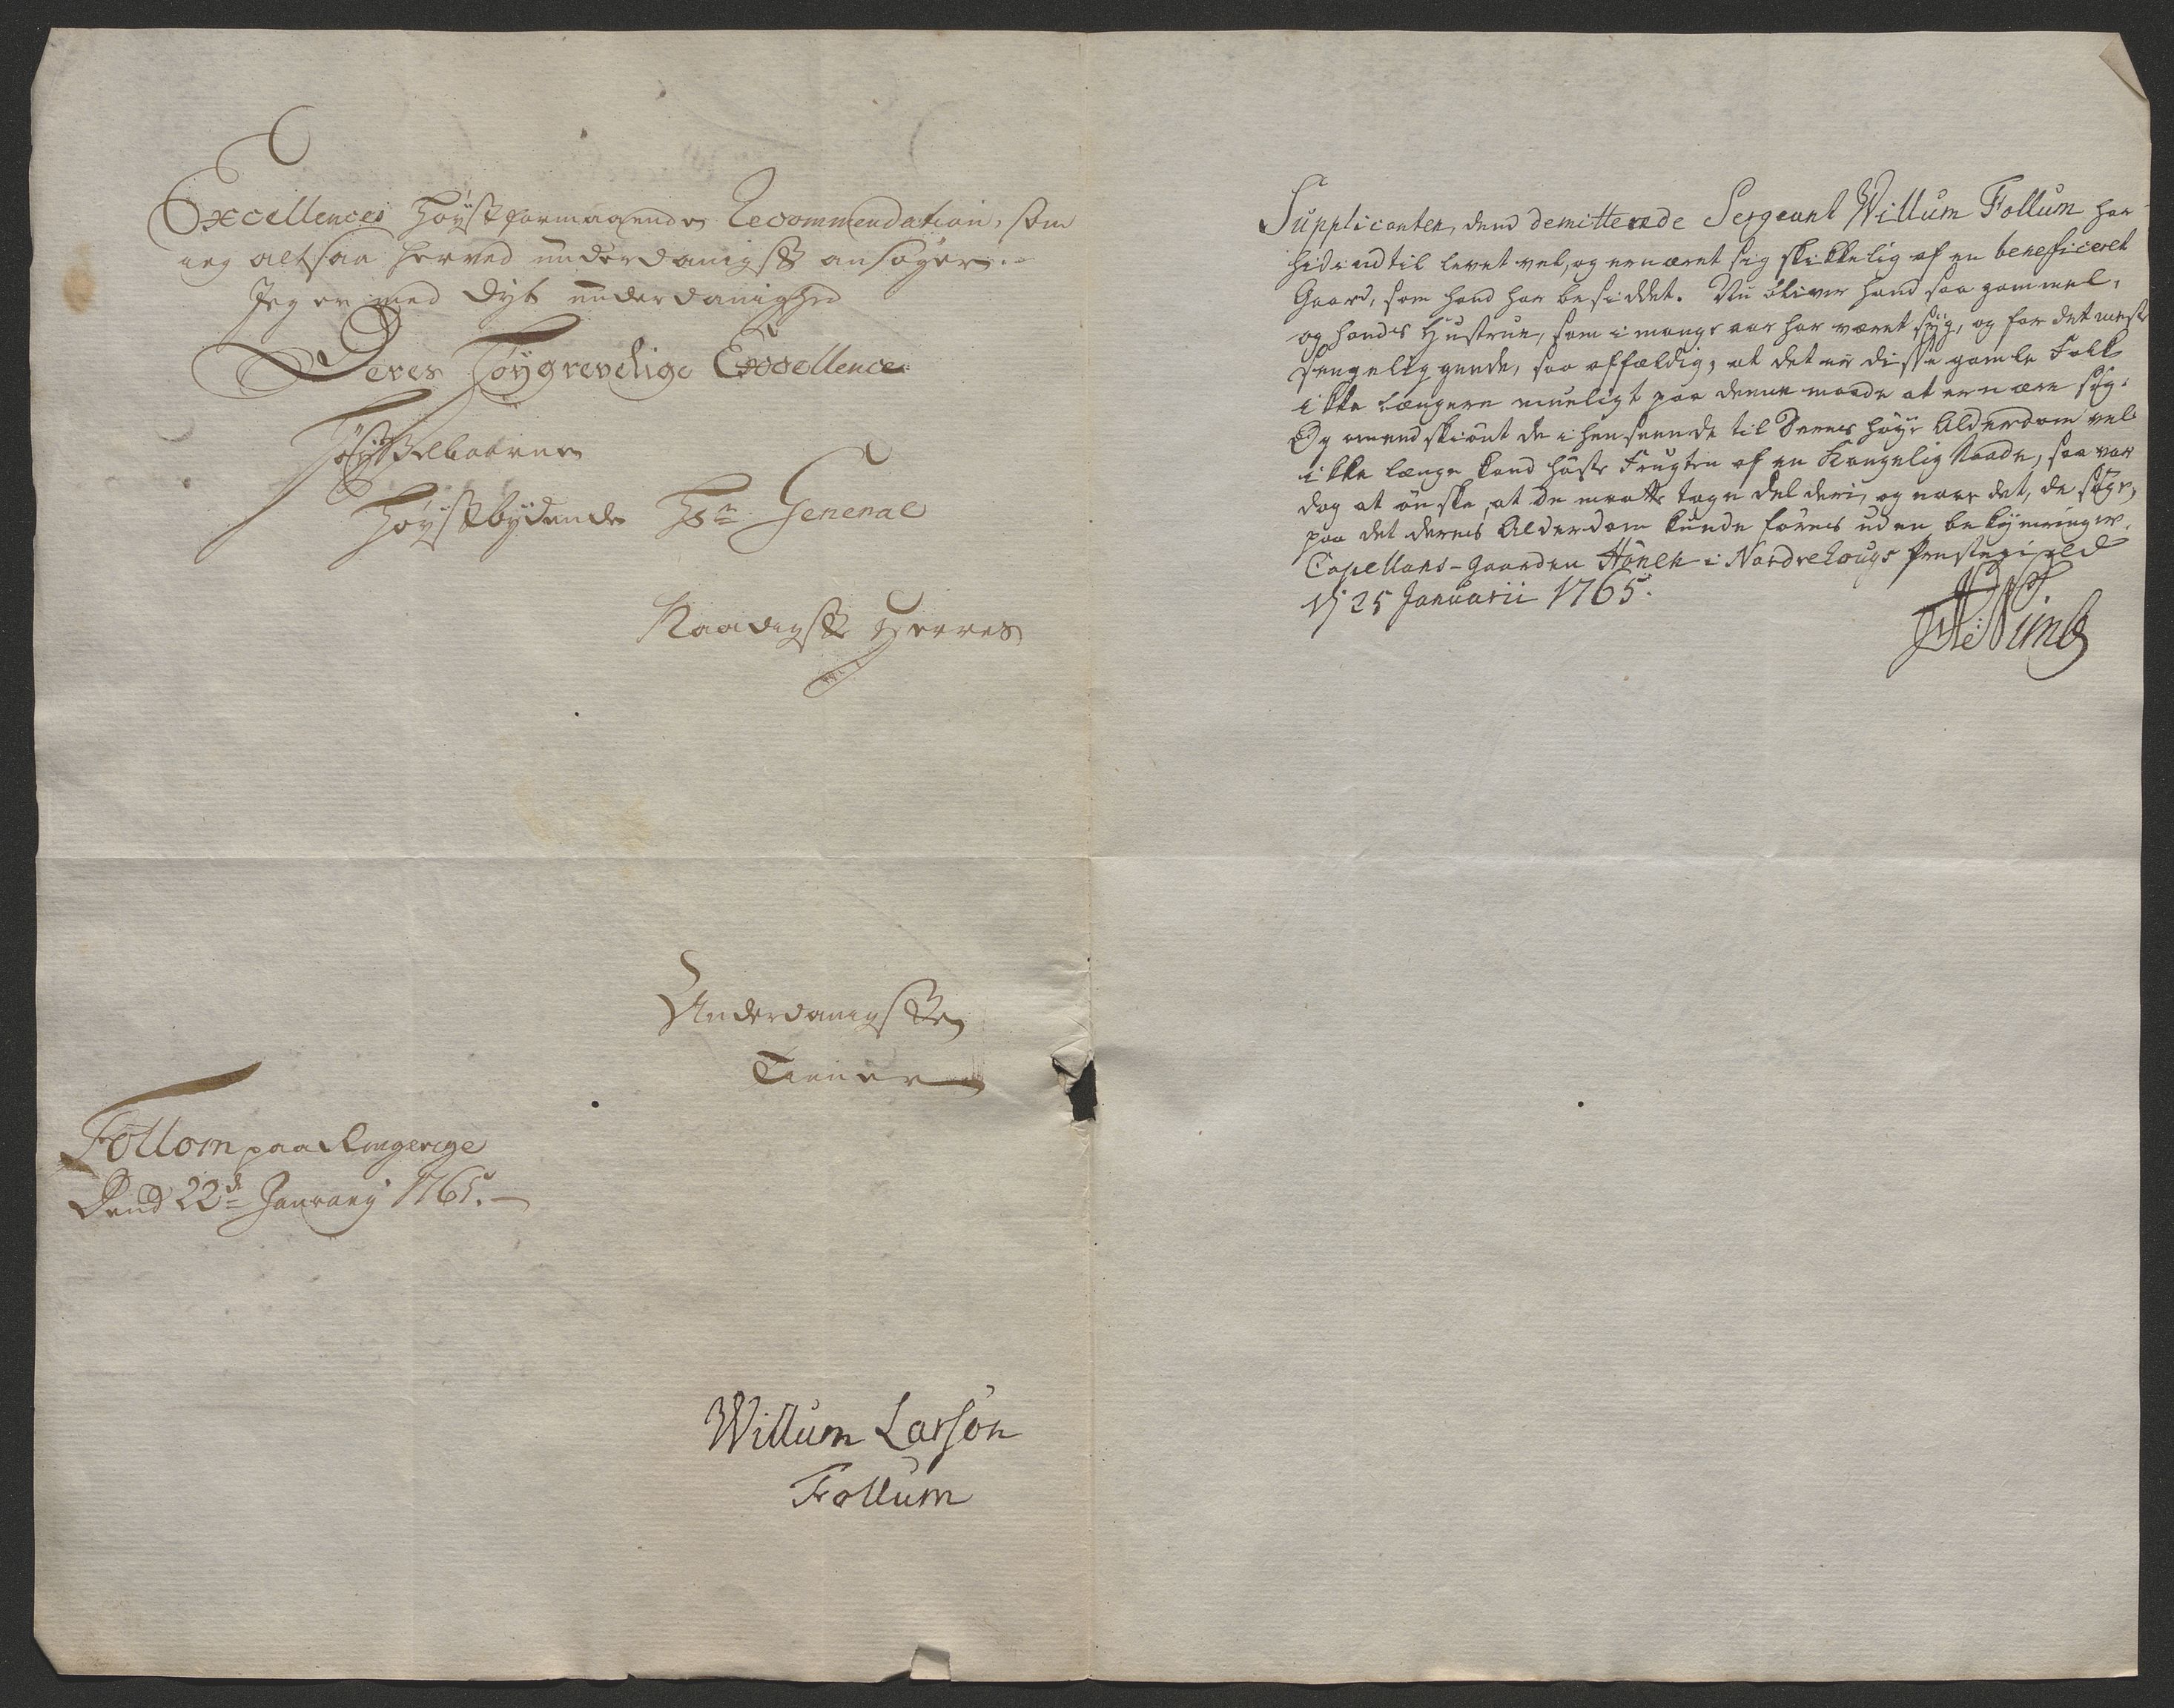 Excellences høystformaaende Recommendation, som
ieg altsaa herved underdanigst ansøger.
Jeg er med dyb underdanighed
Deres Høygrevelige Excellence
Høyvelbaarne
Høystbydende Hr. General
Naadigste Herres
Underdanigste
Tienner
Follom paa Ringerige
Dend 22de Januarij 1765.
Willum Larsøn
Follum
Supplicanten, dend demitterede Sergeant Willum Follum har
hidindtil levet vel, og ernæret sig skikkelig af en beneficeret
Gaard, som hand har besiddet. Nu bliver hand saa gammel,
og hands Hustrue, som i mange aar har været syg, og for det meste
sengeliggende, saa affældig, at det er disse gamle Folk
ikke længere mueligt paa denne maade at ernære sig.
Og omendskiønt de i henseende til Deres høye Alderdom vel
ikke længe kand høste Frugten af en Kongelig Naade, saa var
dog at ønske, at de maatte tage deel deri, og naae det, de søge,
paa det deres Alderdom kunde føres uden bekymringer.
Capellans-gaarden Hønen i Nordrehougs Præstegield
d 25 Januarii 1765.